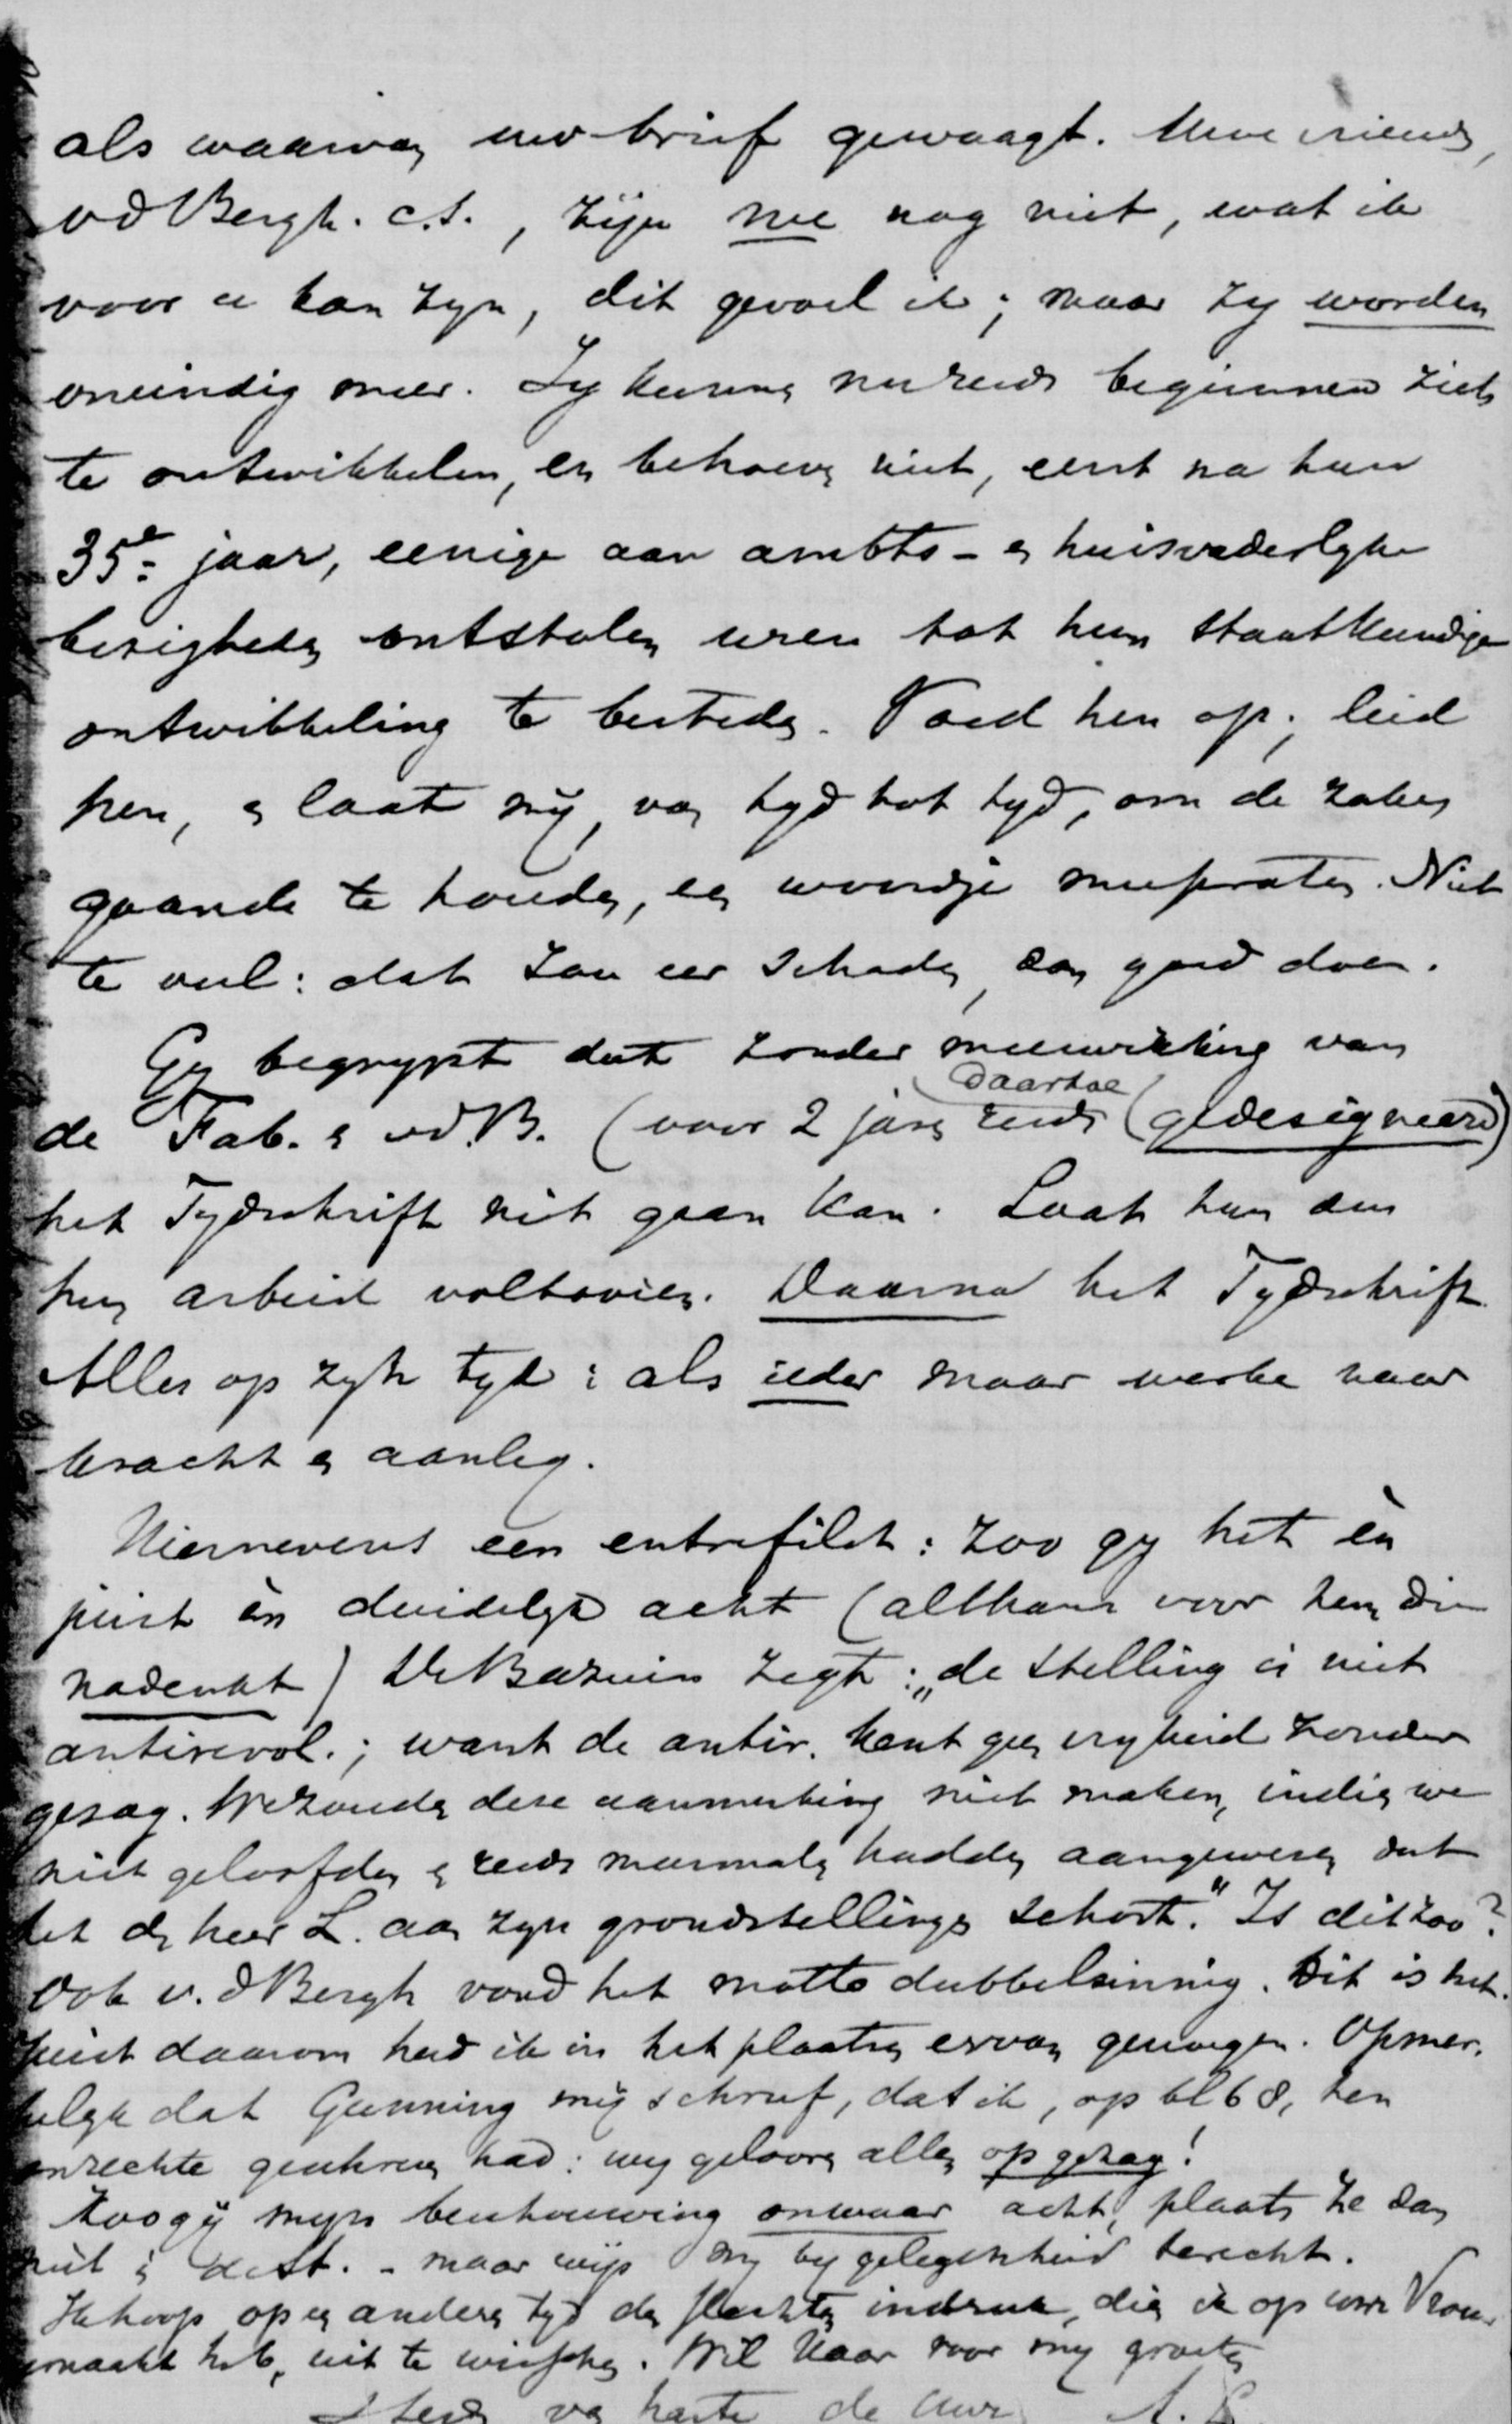 als waarvan uw brief gewaagt. Uwe vrienden,
vd Bergh. c.s., zijn nu nog niet, wat ik
voor u kan zyn, dit gevoel ik; maar zy worden
oneindig meer. Zy kunnen nu reeds beginnen zich
te ontwikkelen, en behoeven niet, eerst na hun
35e jaar, eenige aan ambts- en huisvaderlyke
bezigheden ontstolen uren tot hun staatkundige
ontwikkeling te besteden. Voed hen op; leid
hen, en laat my, van tyd tot tyd, om de zaken
gaande te houden, een woordje meepraten. Niet
te veel: dat zou eer schaden, dan goed doen.
Gy begrypt dat zonder meewerking van
de Fab. en vd.B. (voor 2 jaren reeds daartoe (gedesigneerd)
het Tydschrift niet gaan kan. Laat hen dus
hun arbeid voltooien. Daarna het Tydschrift.
Alles op zyn tyd: als ieder maar werke naar
kracht en aanleg.
Hiernevens een entrefilet: zoo gy het èn
juist èn duidelyk acht (althans voor hen die
nadenkt) De Bazuin zegt: „de stelling is niet
antirevol.; want de antir. kent geen vryheid zonder
gezag. We zouden deze aanmerking niet maken, indien we
niet geloofden en reeds meermalen hadden aangewezen dat
het den heer L. aan zyn grondstellingen schort." Is dit zoo?
Ook v. d Bergh vond het motto dubbelzinnig. Dit is het.
Juist daarom had ik in het plaatsen ervan genoegen. Opmer-
kelyk dat Gunning mij schreef, dat ik, op bl 68, ten
onrechte geschreven had: wy gelooven allen op gezag!
Zoo gij myn beschouwing onwaar acht, plaats ze dan
niet in de St. - maar wijs my by gelegenheid terecht.
Ik hoop op een anderen tyd den slechten indruk, dien ik op uwe Vrouw
gemaakt heb, uit te wisschen. Wil Haar voor my groeten
Steeds van harte de Uwe A. L.